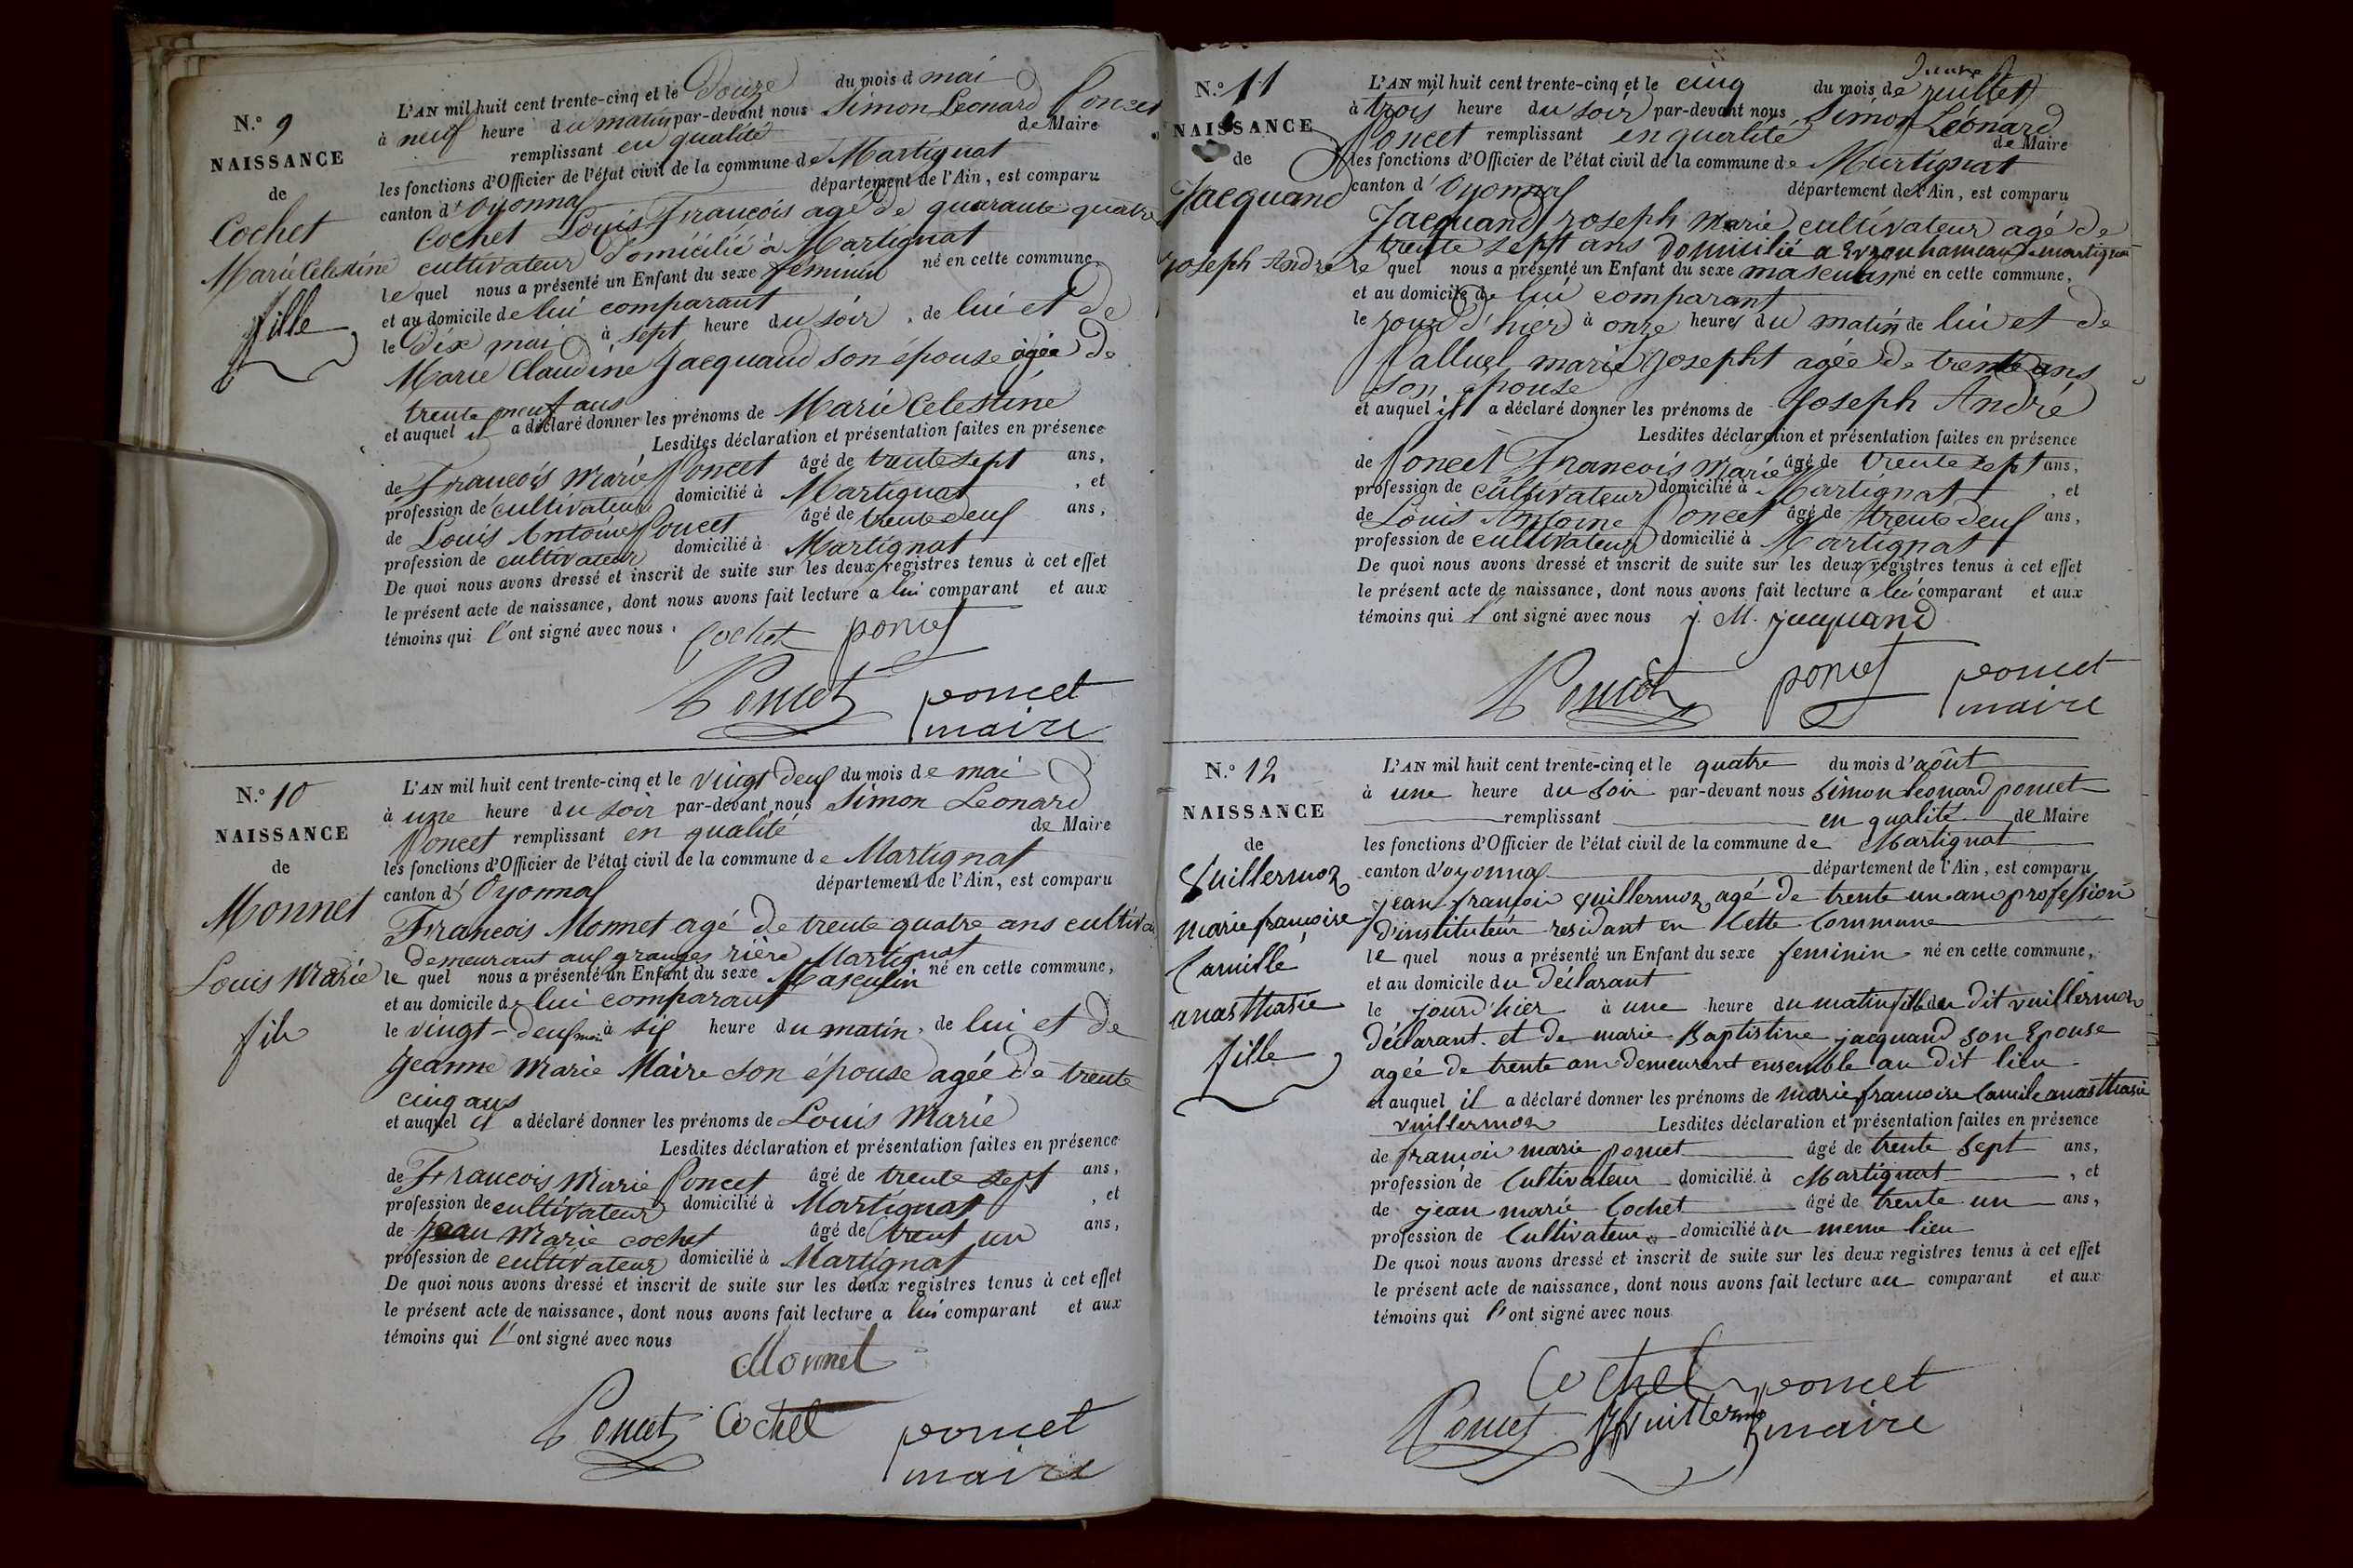 N.º 9
NAISSANCE
de
Cochet
Marie Celestine
fille
L'AN mil huit cent trente-cinq et le Douze du mois d mai
à neuf heure du matin par-devant nous Simon Leonard Poncet
remplissant en qualité de Maire
les fonctions d'Officier de l'état civil de la commune de Martignat
canton d'Oyonnax département de l'Ain, est comparu
Cochet Louis François agé de quarante quatre
cultivateur Domicilié à Martignat
le quel nous a présenté un Enfant du sexe feminin né en cette commune,
et au domicile de lui comparant
le Dix mai à sept heure du soir, de lui et de
Marie Claudine Jacquand son épouse agée de
trente neuf ans
et auquel il a déclaré donner les prénoms de Marie Celestine
Lesdites déclaration et présentation faites en présence
de François Marie Poncet âgé de trente sept ans,
profession de cultivateur domicilié à Martignat, et
de Louis Antoine Poncet âgé de trente deux ans,
profession de cultivateur domicilié à Martignat
De quoi nous avons dressé et inscrit de suite sur les deux registres tenus à cet effet
le présent acte de naissance, dont nous avons fait lecture a lui comparant et aux
témoins qui l'ont signé avec nous.
Cochet poncet
Poncet poncet
maire
N.º 10
NAISSANCE
de
Monnet
Louis Marie
fils
L'AN mil huit cent trente-cinq et le vingt deux du mois de mai
à une heure du soir par-devant nous Simon Leonard
Poncet remplissant en qualité de Maire
les fonctions d'Officier de l'état civil de la commune de Martignat
canton d'Oyonnax département de l'Ain, est comparu
François Monnet agé de trente quatre ans
demeurant aux granges rière Martignat
le quel nous a présenté un Enfant du sexe Masculin né en cette commune,
et au domicile de lui comparant
le vingt-deux mai à six heure du matin, de lui et de
Jeanne Marie Maire son épouse agée de trente
cinq ans
et auquel il a déclaré donner les prénoms de Louis Marie
Lesdites déclaration et présentation faites en présence
de François Marie Poncet âgé de trente sept ans,
profession de cultivateur domicilié à Martignat, et
de Jean Marie cochet âgé de trent un ans,
profession de cultivateur domicilié à Martignat
De quoi nous avons dressé et inscrit de suite sur les deux registres tenus à cet effet
le présent acte de naissance, dont nous avons fait lecture a lui comparant et aux
témoins qui l'ont signé avec nous
Monnet
Poncet Cochet poncet
maire
N.º 11
NAISSANCE
de
Jacquand
Joseph André
L'AN mil huit cent trente-cinq et le cinq du mois de juillet
à trois heure du soir par-devant nous Simon Léonard
Poncet remplissant en qualité de Maire
les fonctions d'Officier de l'état civil de la commune de Martignat
canton d'Oyonnax département de l'Ain, est comparu
Jacquand Joseph Marie cultivateur agé de
trente sept ans Domicilié a hameau de martignat
le quel nous a présenté un Enfant du sexe masculin né en cette commune,
et au domicile de lui comparant
le jour d'hier à onze heures du matin de lui et de
Falluel marie Josepht agée de trente ans
son épouse
et auquel il a déclaré donner les prénoms de Joseph André
Lesdites déclaration et présentation faites en présence
de Poncet François Marie âgé de trente sept ans,
profession de cultivateur domicilié à Martignat, et
de Louis Antoine Poncet âgé de trente deux ans,
profession de cultivateur domicilié à Martignat
De quoi nous avons dressé et inscrit de suite sur les deux registres tenus à cet effet
le présent acte de naissance, dont nous avons fait lecture a lui comparant et aux
témoins qui l'ont signé avec nous j. M. jacquand
Poncet poncet poncet
maire
N.º 12
NAISSANCE
de
Vuillermoz
marie françoise
Camille
anasthasie
fille
L'AN mil huit cent trente-cinq et le quatre du mois d'août
à une heure du soir par-devant nous Simon leonard poncet
remplissant en qualité de Maire
les fonctions d'Officier de l'état civil de la commune de Martignat
canton d'oyonnax département de l'Ain, est comparu
jean françois vuillermoz agé de trente un ans profession
d'instituteur residant en cette Commune
le quel nous a présenté un Enfant du sexe feminin né en cette commune,
et au domicile du déclarant
le jourd'hier à une heure du matin fille du dit vuillermoz
déclarant et de marie Baptistine jacquand son Epouse
agée de trente ans demeurent ensemble au dit lieu
et auquel il a déclaré donner les prénoms de marie françoise Camile anasthasie
vuillermoz Lesdites déclaration et présentation faites en présence
de françois marie poncet âgé de trente sept ans,
profession de Cultivateur domicilié à Martignat, et
de jean marie Cochet âgé de trente un ans,
profession de Cultivateur domicilié au meme lieu
De quoi nous avons dressé et inscrit de suite sur les deux registres tenus à cet effet
le présent acte de naissance, dont nous avons fait lecture au comparant et aux
témoins qui l'ont signé avec nous
Cochet poncet
Poncet Vuillermoz maire